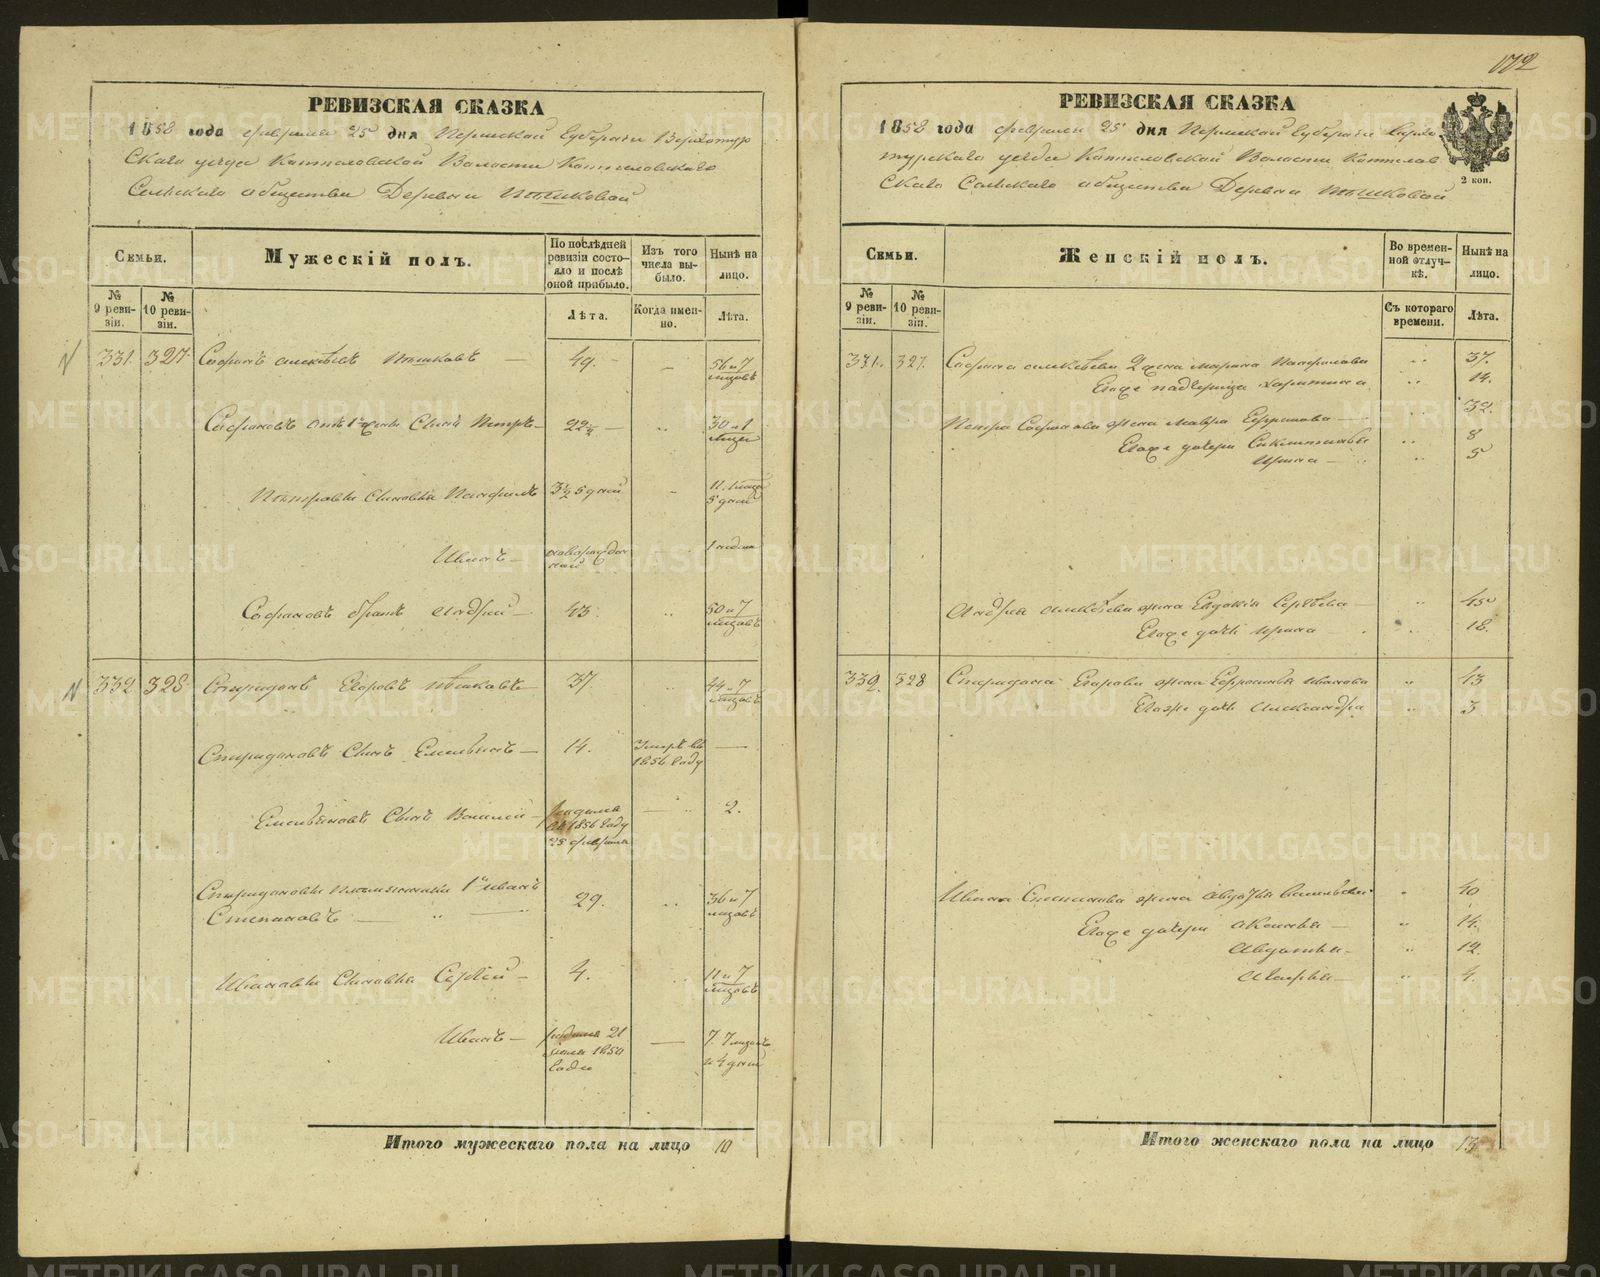 172
РЕВИЗСКАЯ СКАЗКА
1858 года февраля 25 дня Пермской Губернии Верхотур
скаго уезда Коптеловской Волости Коптеловскаго
Сельскаго общества Деревни
Семьи.
Мужескій полъ.
По послѣдней ревизіи состояло и послѣ оной прибыло.
Изъ того числа выбыло.
Нынѣ на лицо.
№ 9 ревизіи.
№ 10 ревизіи.
Лѣта.
Когда именно.
Лѣта.
331. 327. Софонъ Алексѣевъ 49. 56 и 7 месяцовъ
Софоновъ отъ 1й жены Сынъ Петръ 22½ 30 и 1 месяц
Петровы Сыновья Панфилъ 3½ 5 дней 11. 5 дней
Иванъ 1 недели
Софоновъ братъ Андрей 43. 50 и 7 месяцовъ
332 328 Спиридонъ Егоровъ 37. 44 и 7 месяцовъ
Спиридоновъ Сынъ Емельянъ 14. Умеръ въ 1856 году
Емельяновъ Сынъ Василей родился въ 1856 году 25 февраля 2.
Спиридоновы племянники 1й Иванъ
Степановъ 29. 36 и 7 месяцовъ
Ивановы Сыновья Сергей 4. 11 и 7 месяцовъ
Иванъ родился 21 июля 1850 года 7. 7 месяцовъ и 4 дней
Итого мужескаго пола на лицо 10
РЕВИЗСКАЯ СКАЗКА
1858 года февраля 25 дня Пермской Губернии Верхо
турскаго уезда Коптеловской Волости Коптелов
скаго Сельскаго общества Деревни
2 коп.
Семьи.
Женскій полъ.
Во временной отлучкѣ.
Нынѣ на лицо.
№ 9 ревизіи.
№ 10 ревизіи.
Съ котораго времени.
Лѣта.
331. 327. Софона Алексѣева 2 жена Марина Панфилова 37.
Егоже падчерица Харитина 14.
Петра Софонова жена Мавра Ефимова 32.
Егоже дочери 8
Ирина 5
Андрея Алексѣева жена Евдокия Сергѣева 45
Егоже дочь Ирина 18.
332. 328 Спиридона Егорова жена Ефросинья Иванова 43
Егоже дочь Александра 3
Ивана Степанова жена Авдотья Васильева 40
Егоже дочери Аксинья 14.
Авдотья 12.
Марья 4.
Итого женскаго пола на лицо 13
METRIKI.GASO-URAL.RU